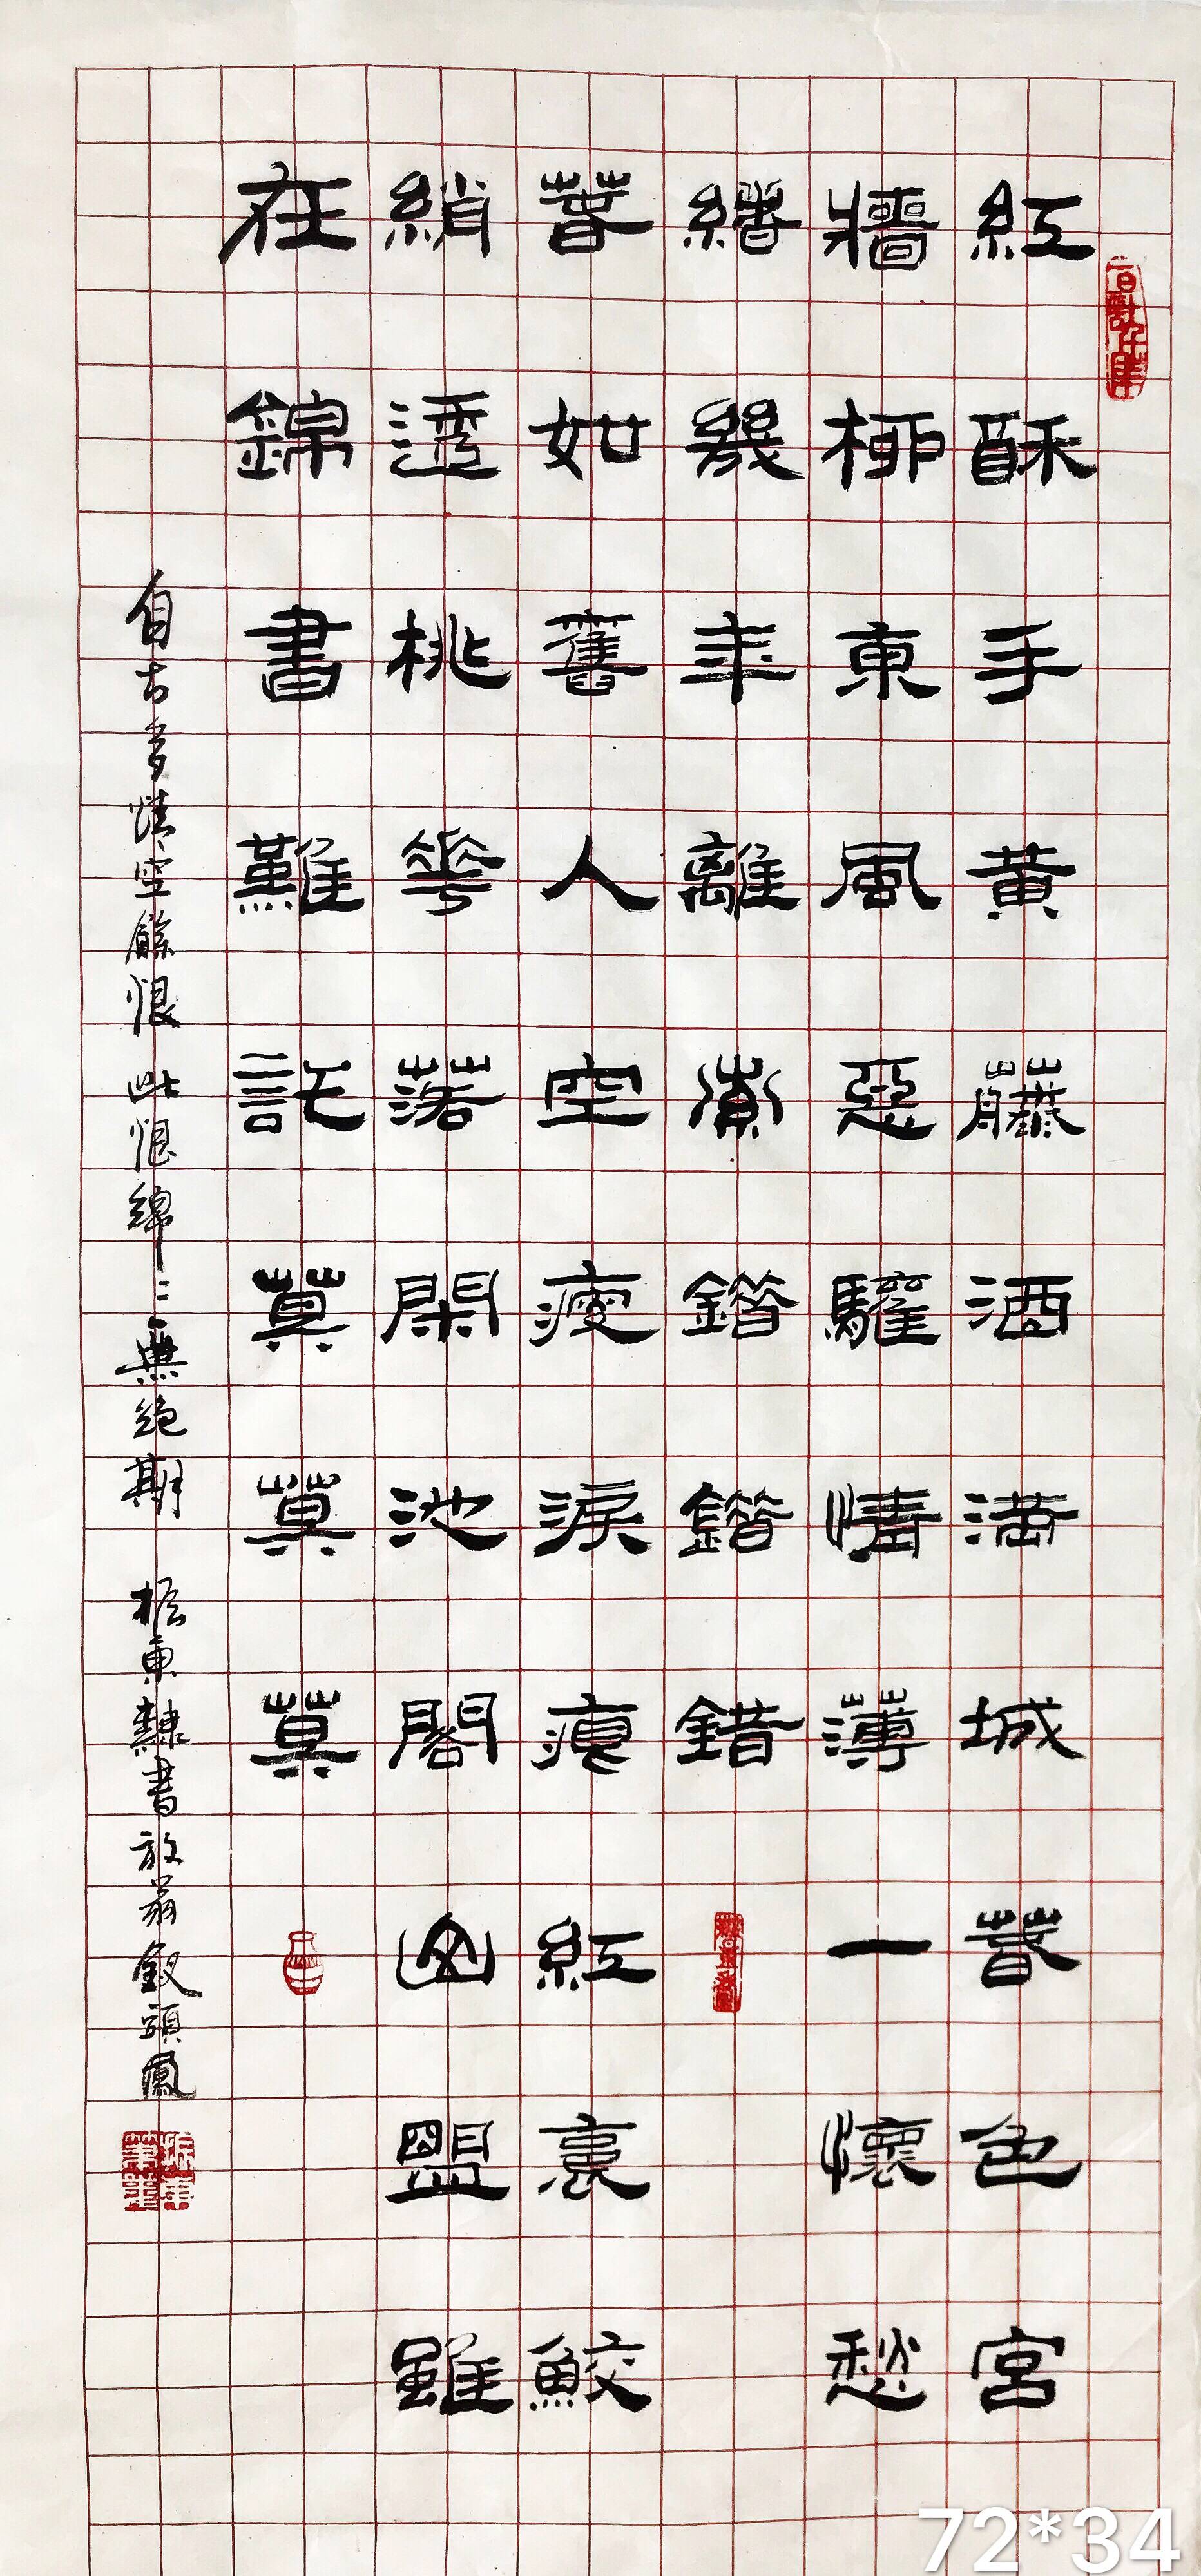 紅酥手黄藤酒滿城萅色宮
牆柳東風惡驩情薄一懷愁
緒幾年離索錯錯錯
萅如舊人空瘦淚痕紅裛鮫
綃透桃花落閑池閣山盟雖
在錦書難託莫莫莫
自古多情空餘恨 此恨綿〻無絕期 振東隸書放翁釵頭鳳
72*34